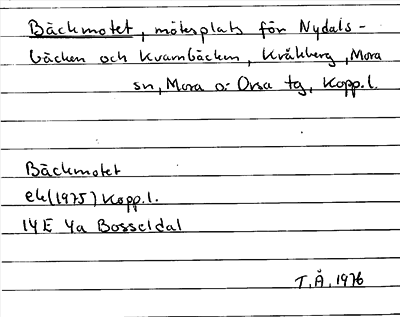 Bäckmotet, mötesplats för Nydals-
bäcken och Kvarnbäcken, Kråkberg, Mora
sn, Mora o. Orsa tg, Kopp.l.
Bäckmotet
ek (1975) Kopp.l.
14E 4a Bosseldal
T.Å. 1976